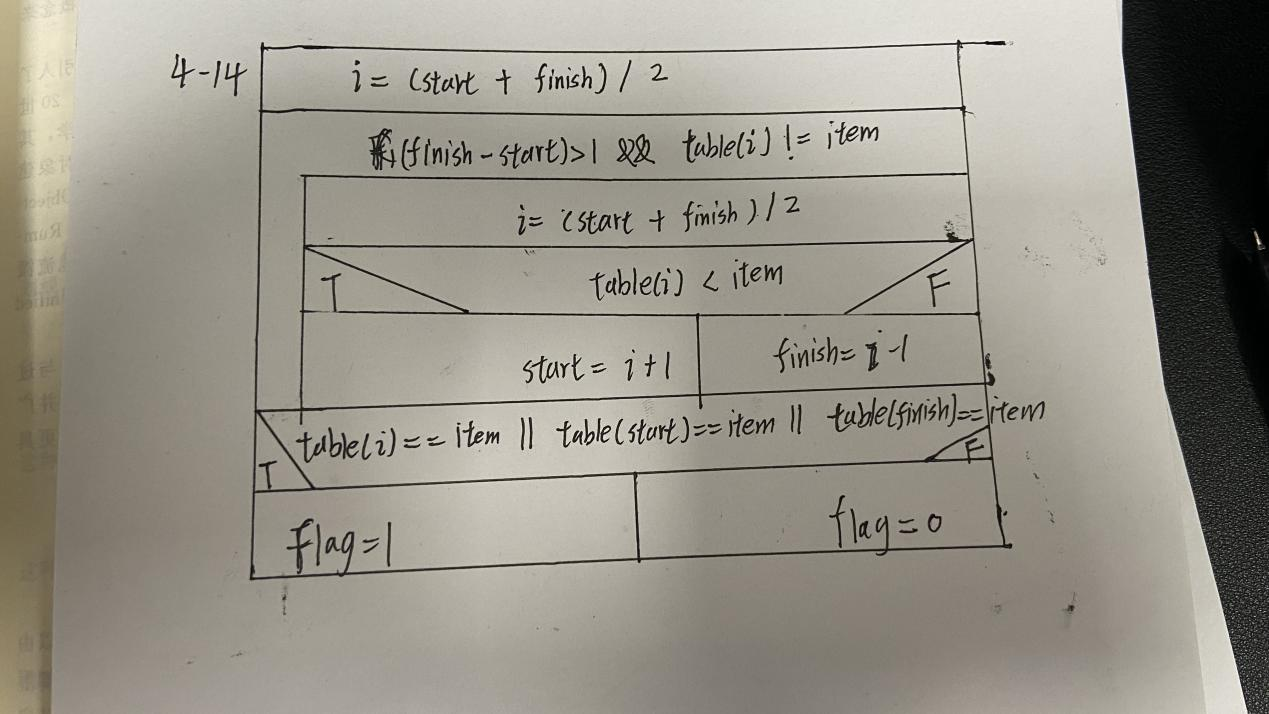 4-14
i = (start + finish) / 2
(finish - start) > 1 && table(i) != item
i = (start + finish) / 2
T table(i) < item F
start = i + 1 finish = i - 1
table(i) == item || table(start) == item || table(finish) == item
T F
flag = 1 flag = 0